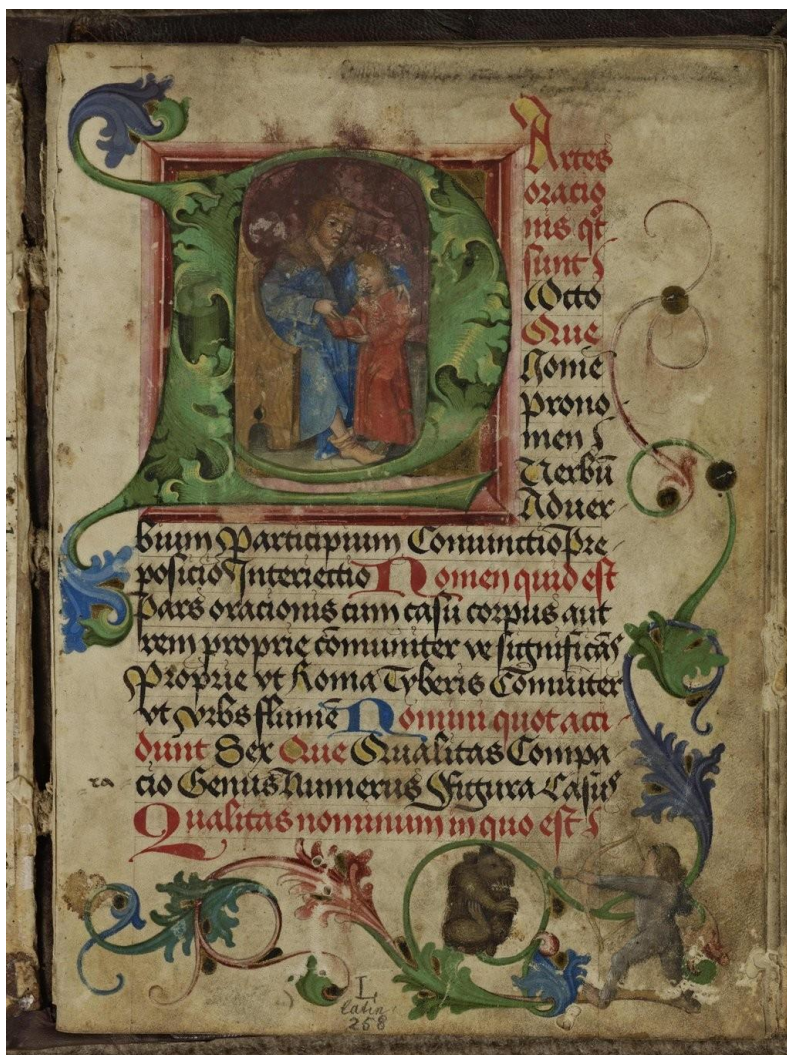 P
Artes
oracio
nis qt
sunt
Octo
Que
Nomē
prono
men
Verbū
Aduer
bium Participium Coniunctio Pre
posicio Interiectio Nomen quid est
Pars oracionis cum casu corpus aut
rem proprie cōmuniter ve significās
Proprie vt Roma Tyberis Cōmuniter
vt vrbs flumē Nomini quot acci
dunt Sex Que Qualitas Compa
ra
cio Genus Numerus Figura Casus
Qualitas nominum in quo est
L
latin
258